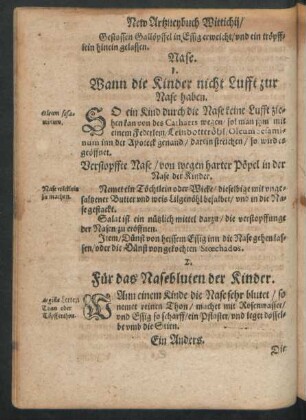 New Artzneybuch Wittichij/
Gestossen Gallöpffel in Essig erweicht/ vnd ein tröpff-
lein hinein gelassen.
Nase.
1.
Wann die Kinder nicht Lufft zur
Nase haben.
Oleum sesa-
minum.
SO ein Kind durch die Nase keine Lufft zie-
hen kan von des Catharri wegen/ sol man jhm mit
einem Federlein/ Leindotteröhl/ Oleum sesamin-
num inn der Apoteck genand/ darein streichen/ so wird es
geöffnet.
Verstopffte Nase/ von wegen harter Pöpel in der
Nase der Kinder.
Nase
zu machen.
Nemet ein Töchtlein oder Wicke/ dieselbige mit vnge-
saltzener Butter vnd weis Lilgenöhl besalbet/ vnd in die Na-
se gesteckt.
Salat ist ein nützlich mittel darzu/ die verstopffunge
der Nasen zu eröffnen.
Item/ Dünst von heissem Essig inn die Nase gehen las-
sen/ oder die Dünst von gekochten Stoechados.
2.
Für das Nasebluten der Kinder.
Argilla
Töpfferthon.
WAnn einem Kinde die Nase sehr blutet/ so
nemet reinen Thon/ machet mit Rosenwasser/
vnd Essig so scharff/ ein Pflaster/ vnd leget dassel-
be vmb die Stirn.
Ein Anders.
Die